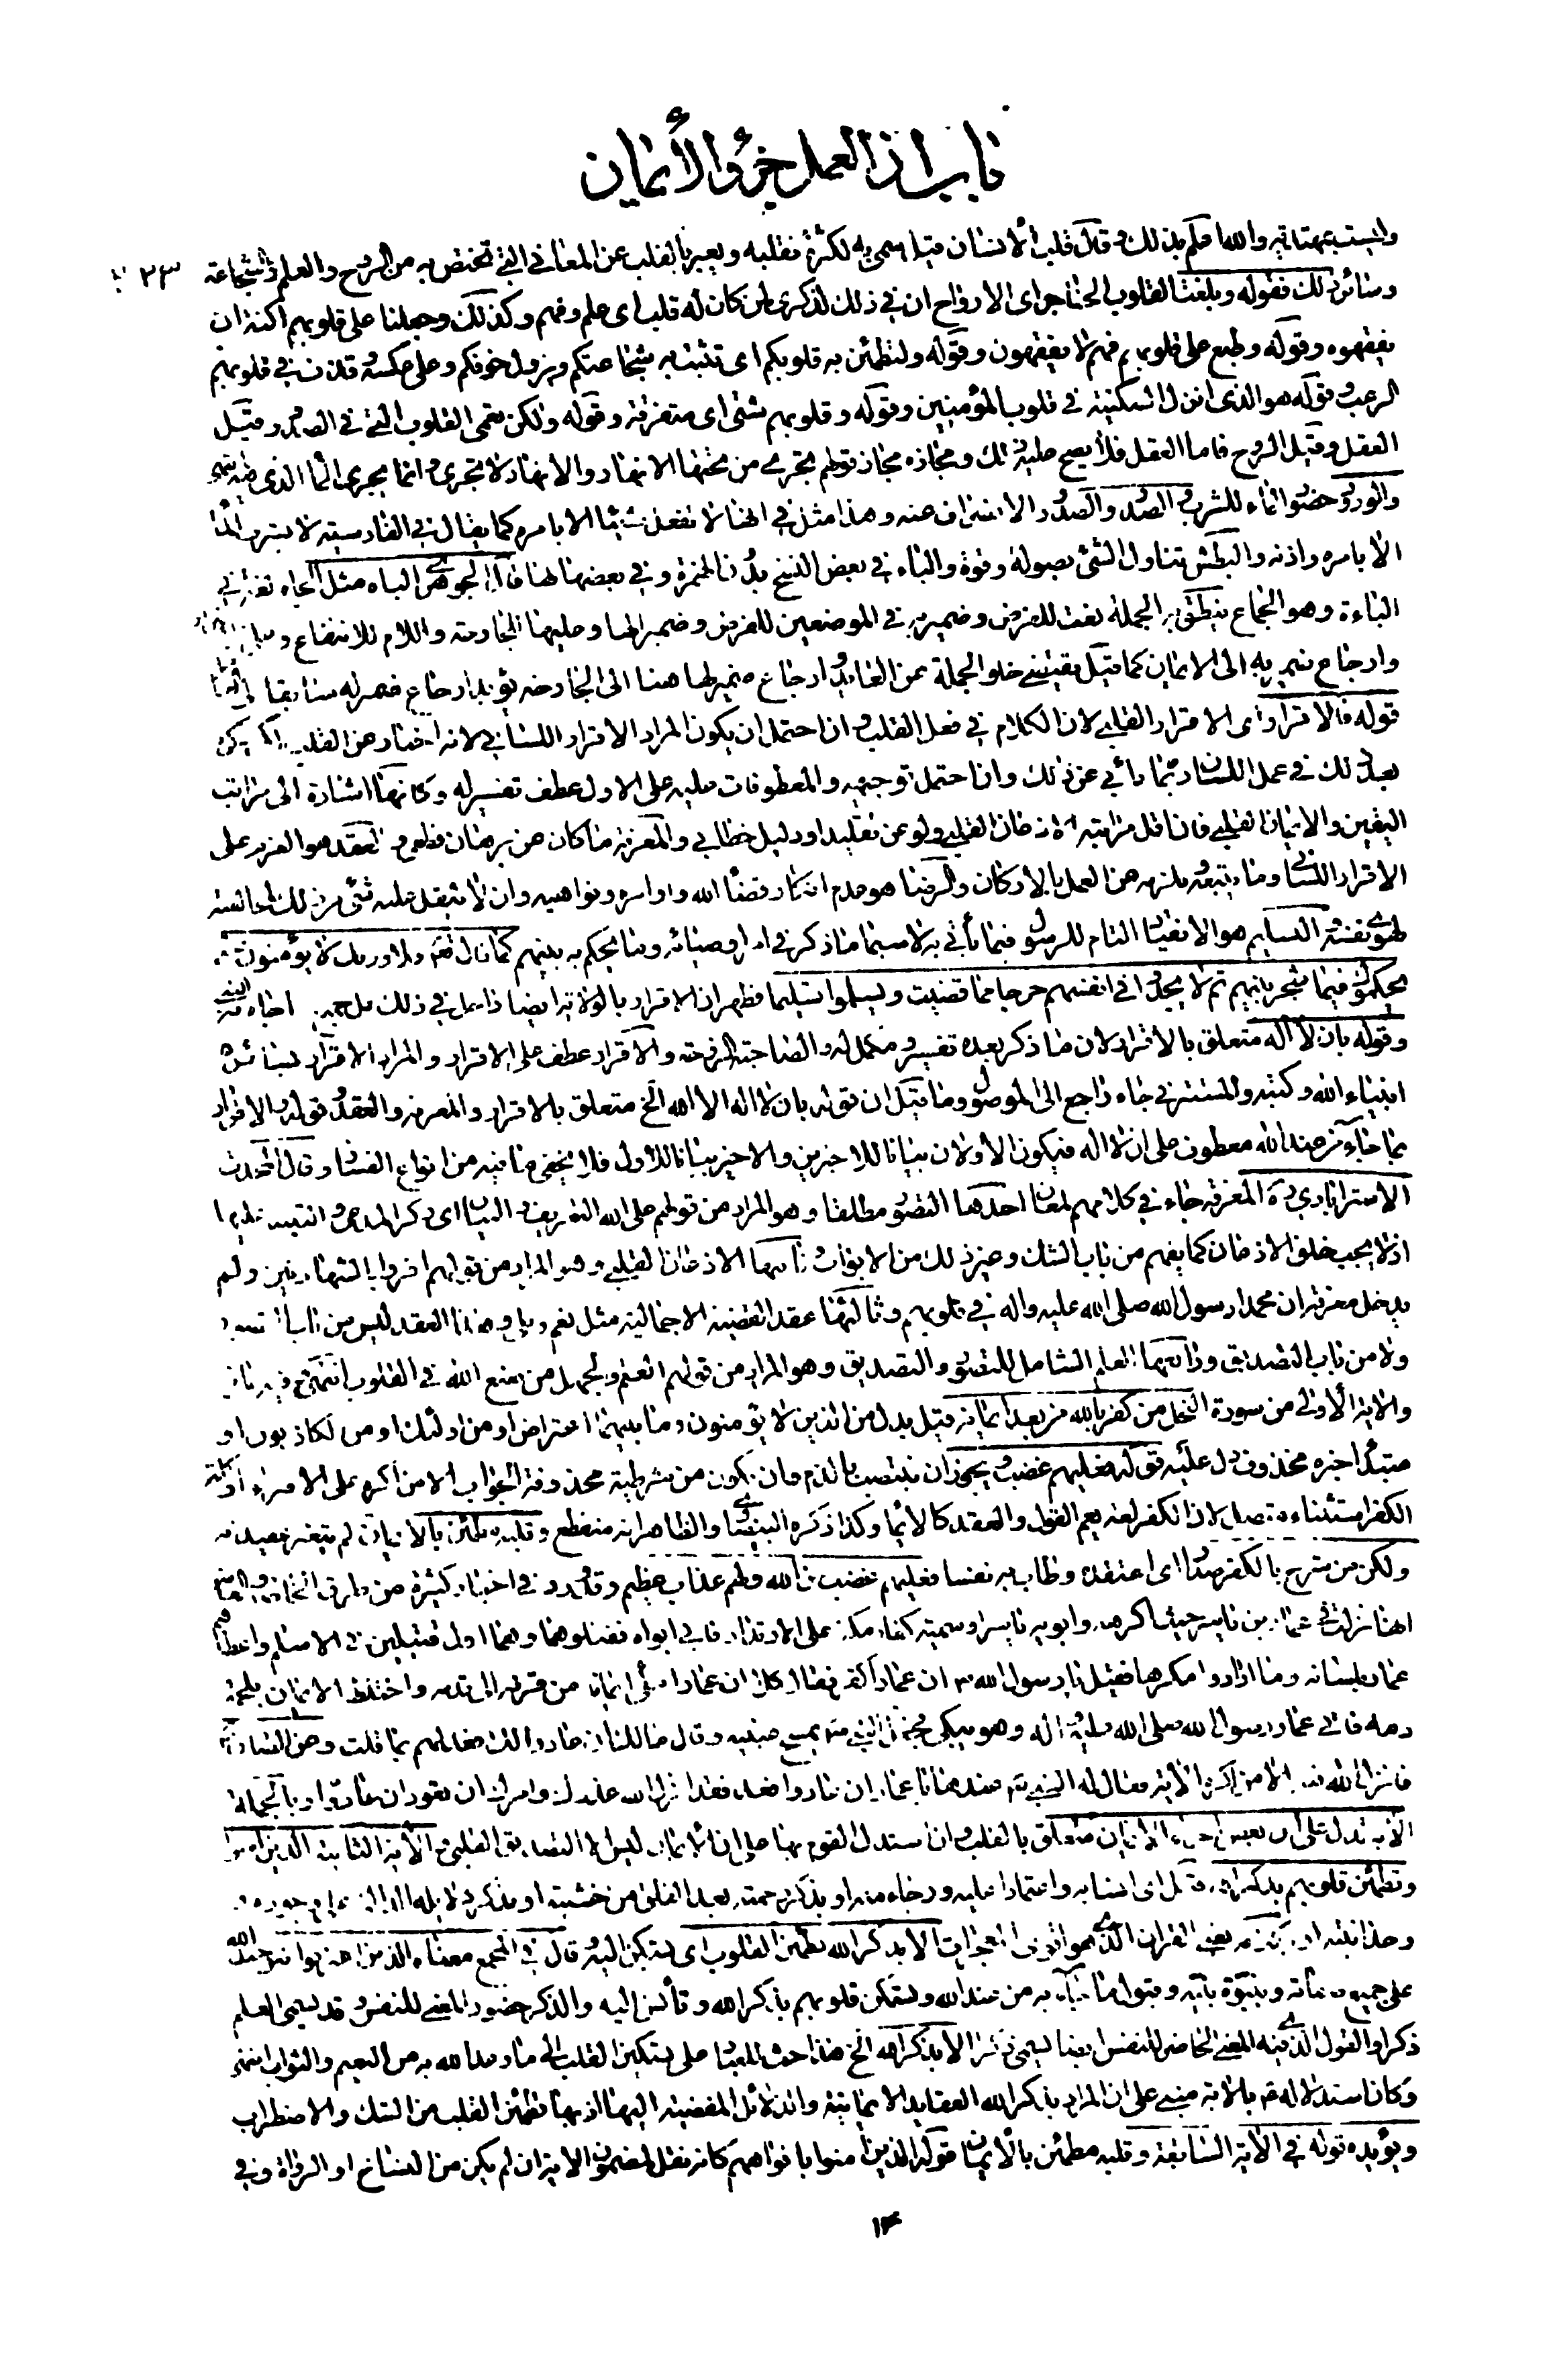 باب ان العمل جزء الأيمان
وليست بمهتاتيه والله اعلم بذلك وقال قلب الانسان قيل سمي به لكثرة تقلبه ويعبر بالقلب عن المعاني التي تختص به من الروح والعلم والشجاعة
وسائر ذلك فقوله وبلغت القلوب الحناجر اى الارواح ان في ذلك لذكرى لمن كان له قلب اى علم وفهم وكذلك وجعلنا على قلوبهم اكنة ان
يفقهوه وقوله وطبع على قلوبهم فهم لا يفقهون وقوله ولتطمئن به قلوبكم اى تثبت به شجاعتكم ويزول خوفكم وعلى عكسه قذف في قلوبهم
الرعب وقوله هو الذى انزل السكينة في قلوب المؤمنين وقوله وقلوبهم شتى اى متفرقة وقوله ولكن تعمى القلوب التي في الصدور قيل
العقل وقيل الروح فاما العقل فلا يصح عليه ذلك ومجازه مجاز قولهم تجري من تحتها الانهار والانهار لا تجرى وانما يجرى الماء الذى فيه
والورود حضور الماء للشرب والصدر والصدور الانصراف عنه وهذا مثل في انها لا تفعل شيئا الا بامره كما يقال في الفارسية لا يشرب الماء
الا بامره واذنه والبطش تناول الشئ بصولة وقوة والباء في بعض النسخ بدون الهمزة وفي بعضها بها قال الجوهرى الباه مثل الجاه لغة في
الباءة وهو الجماع ينطق به الجملة نعت للفرض وضمير به في الموضعين للفرض وضمير لها وعليها للجارحة واللام للانتفاع
وارجاع ضمير به الى الايمان كما قيل يقتضى خلو الجملة عن العائد وارجاع ضمير لها هنا الى الجارحة يؤيد ارجاع ضمير له سابقا
قوله فالاقرار اى الاقرار القلبي لان الكلام في فعل القلب وان احتمل ان يكون المراد الاقرار اللساني لانه اخبار عن القلب
بعد ذلك في عمل اللسان ربما يأبى عن ذلك وان احتمل توجيهه والمعطوفات عليه على الاول عطف تفسير له وكانها اشارة الى مراتب
اليقين والايمان القلبي فان اقل مراتبه الاذعان القلبي ولو عن تقليد او دليل خطابي والمعرفة ما كان عن برهان قطعي والعقد هو العزم على
الاقرار اللساني وما يتبعه ويلزمه من العمل بالاركان والرضا هو عدم انكار قضاء الله واوامره ونواهيه وان لا يثقل عليه شئ من ذلك لمخالفته
لهوى نفسه والتسليم هو الانقياد التام للرسول فيما يأتى به لا سيما ما ذكر في امر اوصيائه وما يحكم به بينهم كما قال تعالى فلا وربك لا يؤمنون حتى
يحكموك فيما شجر بينهم ثم لا يجدوا في انفسهم حرجا مما قضيت ويسلموا تسليما فظهر ان الاقرار بالولاية ايضا داخل في ذلك
وقوله بان لا اله متعلق بالاقرار لان ما ذكر بعده تفسير ومكمل له والصاحبة الزوجة والاقرار عطف على الاقرار والمراد الاقرار بسائر
انبياء الله وكتبه والمستتر في جاء راجع الى الموصول وما قيل ان قوله بان لا اله الا الله الخ متعلق بالاقرار والمعرفة والعقد وقوله والاقرار
بما جاء من عند الله معطوف على ان لا اله فيكون الأولان بيانا للاخيرين والاخير بيانا للأول فلا يخفى ما فيه من انواع الفساد وقال المحدث
الاسترابادي ره المعرفة جاء في كلامهم لمعان احدها التصور مطلقا وهو المراد من قولهم على الله التعريف والبيان اى ذكر المدعى والتنبيه عليها
اذ لا يجب خلق الاذعان كما يفهم من باب الشك وغير ذلك من الابواب وثانيها الاذعان القلبي وهو المراد من قولهم اقروا بالشهادتين ولم
يدخل معرفة ان محمدا رسول الله صلى الله عليه واله في قلوبهم وثالثها عقد القضية الاجمالية مثل نعم وبلى وهذا العقد ليس من باب التصور
ولا من باب التصديق ورابعها العلم الشامل للتصور والتصديق وهو المراد من قولهم العلم والجهل من صنع الله في القلوب انتهى
والاية الأولى من سورة النحل من كفر بالله من بعد ايمانه قيل بدل من الذين لا يؤمنون وما بينهما اعتراض او من اولئك او من الكاذبون او
مبتدأ خبره محذوف دل عليه قوله فعليهم غضب ويجوز ان ينتصب بالذم وان يكون من شرطية محذوفة الجواب الا من اكره على الافتراء او كلمة
الكفر استثناء متصل لان الكفر لغة يعم القول والعقد كالايمان وكذا ذكره البيضاوي والظاهر انه منقطع وقلبه مطمئن بالايمان لم يتغير عقيدته
ولكن من شرح بالكفر صدرا اى اعتقده وطاب به نفسا فعليهم غضب من الله ولهم عذاب عظيم وقد ورد في اخبار كثيرة من طرق الخاصة والعامة
انها نزلت في عمار بن ياسر حيث اكرهه وابويه ياسر وسمية كفار مكة على الارتداد فابى ابواه فقتلوهما وهما اول قتيلين في الاسلام واعطاهم
عمار بلسانه وما ارادوا مكرها فقيل يا رسول الله ص ان عمارا كفر فقال كلا ان عمارا ملئ ايمانا من قرنه الى قدمه واختلط الايمان بلحمه
ودمه فاتى عمار رسول الله صلى الله عليه واله وهو يبكي فجعل النبي ص يمسح عينيه وقال مالك ان عادوا لك فعد لهم بما قلت وعن الصادق
فانزل الله فيه الا من اكره الاية فقال له النبي ص عندها يا عمار ان عادوا فعد فقد انزل الله عذرك وامرك ان تعود ان عادوا وبالجملة
الاية تدل على ان بعض اجزاء الايمان متعلق بالقلب وان استدل القوم بها على ان الايمان ليس الا التصديق القلبي والأية الثانية الذين امنوا
وتطمئن قلوبهم بذكر الله قيل اى انسا به واعتمادا عليه ورجاء منه او بذكر رحمته بعد القلق من خشيته او بذكر دلائله الدالة على وجوده
وحدانيته او بكلامه يعني القران الذى هو اقوى المعجزات الا بذكر الله تطمئن القلوب اى تسكن اليه وقال في المجمع معناه الذين اعترفوا بتوحيد الله
على جميع صفاته ونبوة نبيه وقبول ما جاء به من عند الله وتسكن قلوبهم بذكر الله وتأنس اليه والذكر حضور المعنى للنفس وقد يسمى العلم
ذكرا والقول الذى فيه المعنى الحاضر للنفس ايضا يسمى ذكرا الا بذكر الله الخ هذا حث للعباد على تسكين القلب الى ما وعد الله به من النعيم والثواب انتهى
وكان استدلاله ع بالاية مبني على ان المراد بذكر الله العقايد الايمانية والدلائل المفضية اليها اذ بها تطمئن القلب من الشك والاضطراب
ويؤيده قوله في الأية السابقة وقلبه مطمئن بالأيمان قوله الذين امنوا بافواههم كانه نقل لمضمون الاية ان لم يكن من النساخ او الرواة وفي
١٣